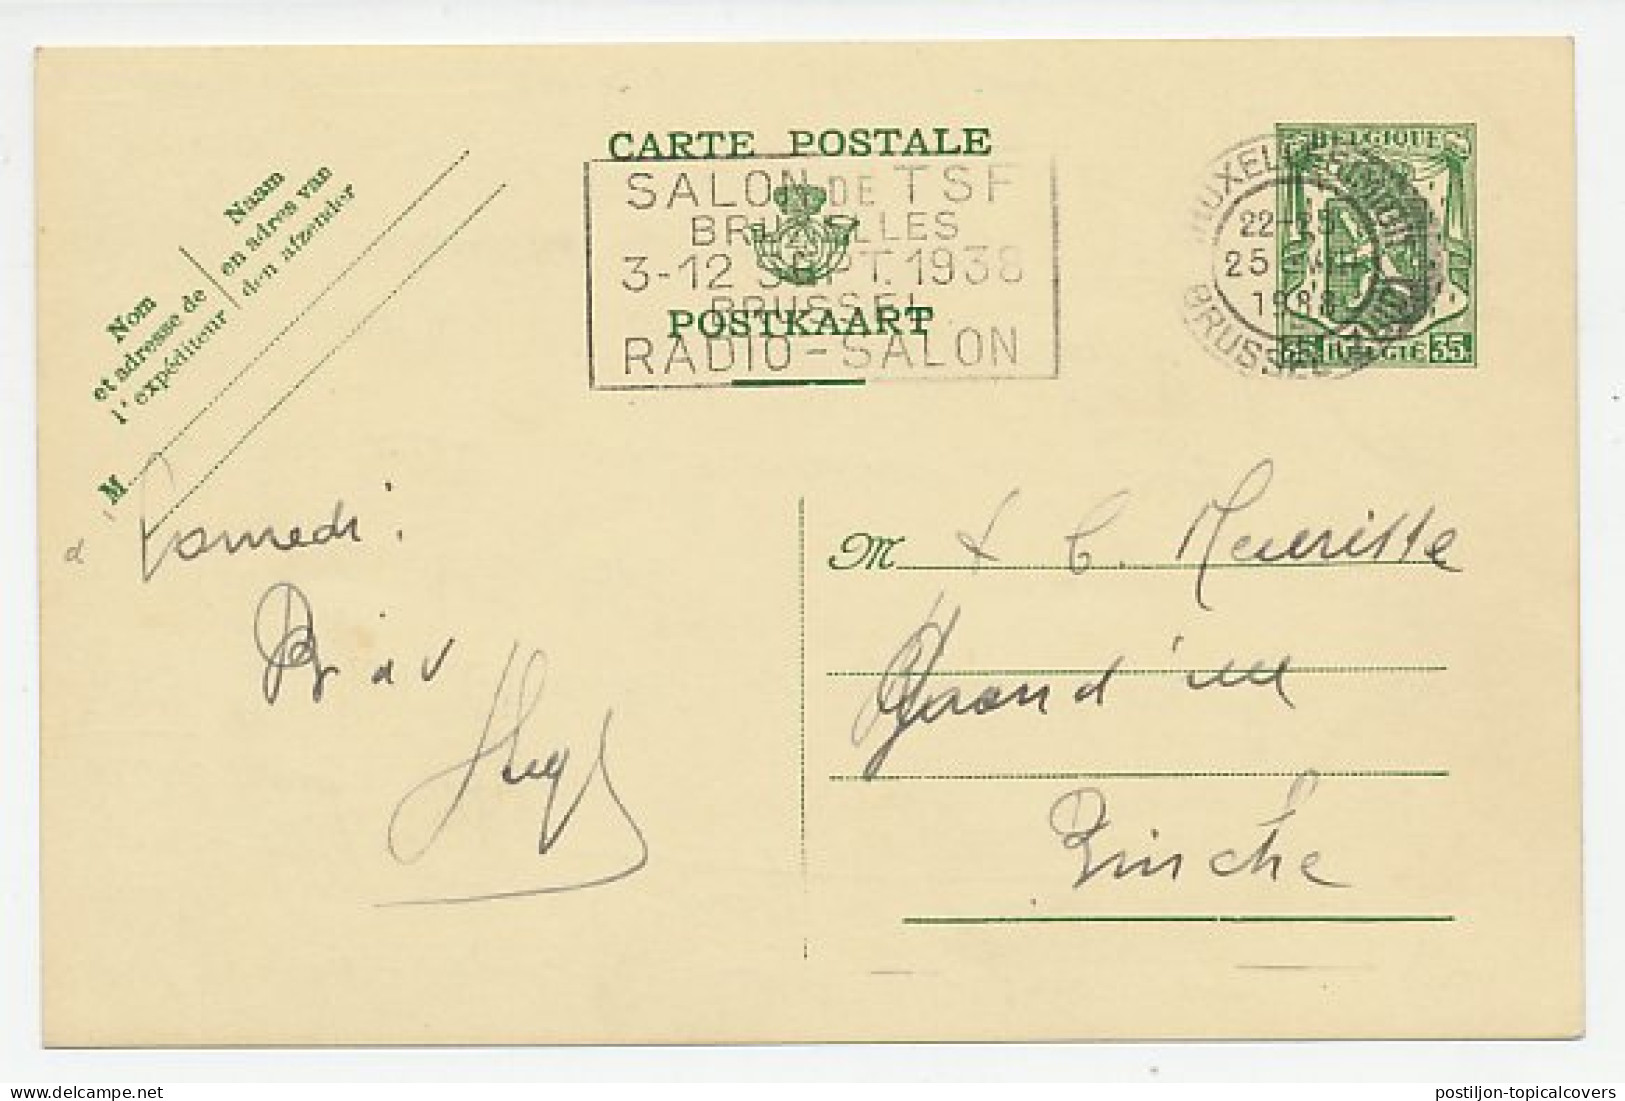 CARTE POSTALE
SALON DE TSF
BRUXELLES
3-12 SEPT. 1938
BRUSSEL
POSTKAART
RADIO-SALON
BELGIQUE
22-23
25
1938
BRUSSEL
35 BELGIE 35
Naam
en adres van
den afzender
Nom
et adresse de
l'expéditeur
M
Samedi.
M
Grand'rue
Binche
postiljon-topicalcovers